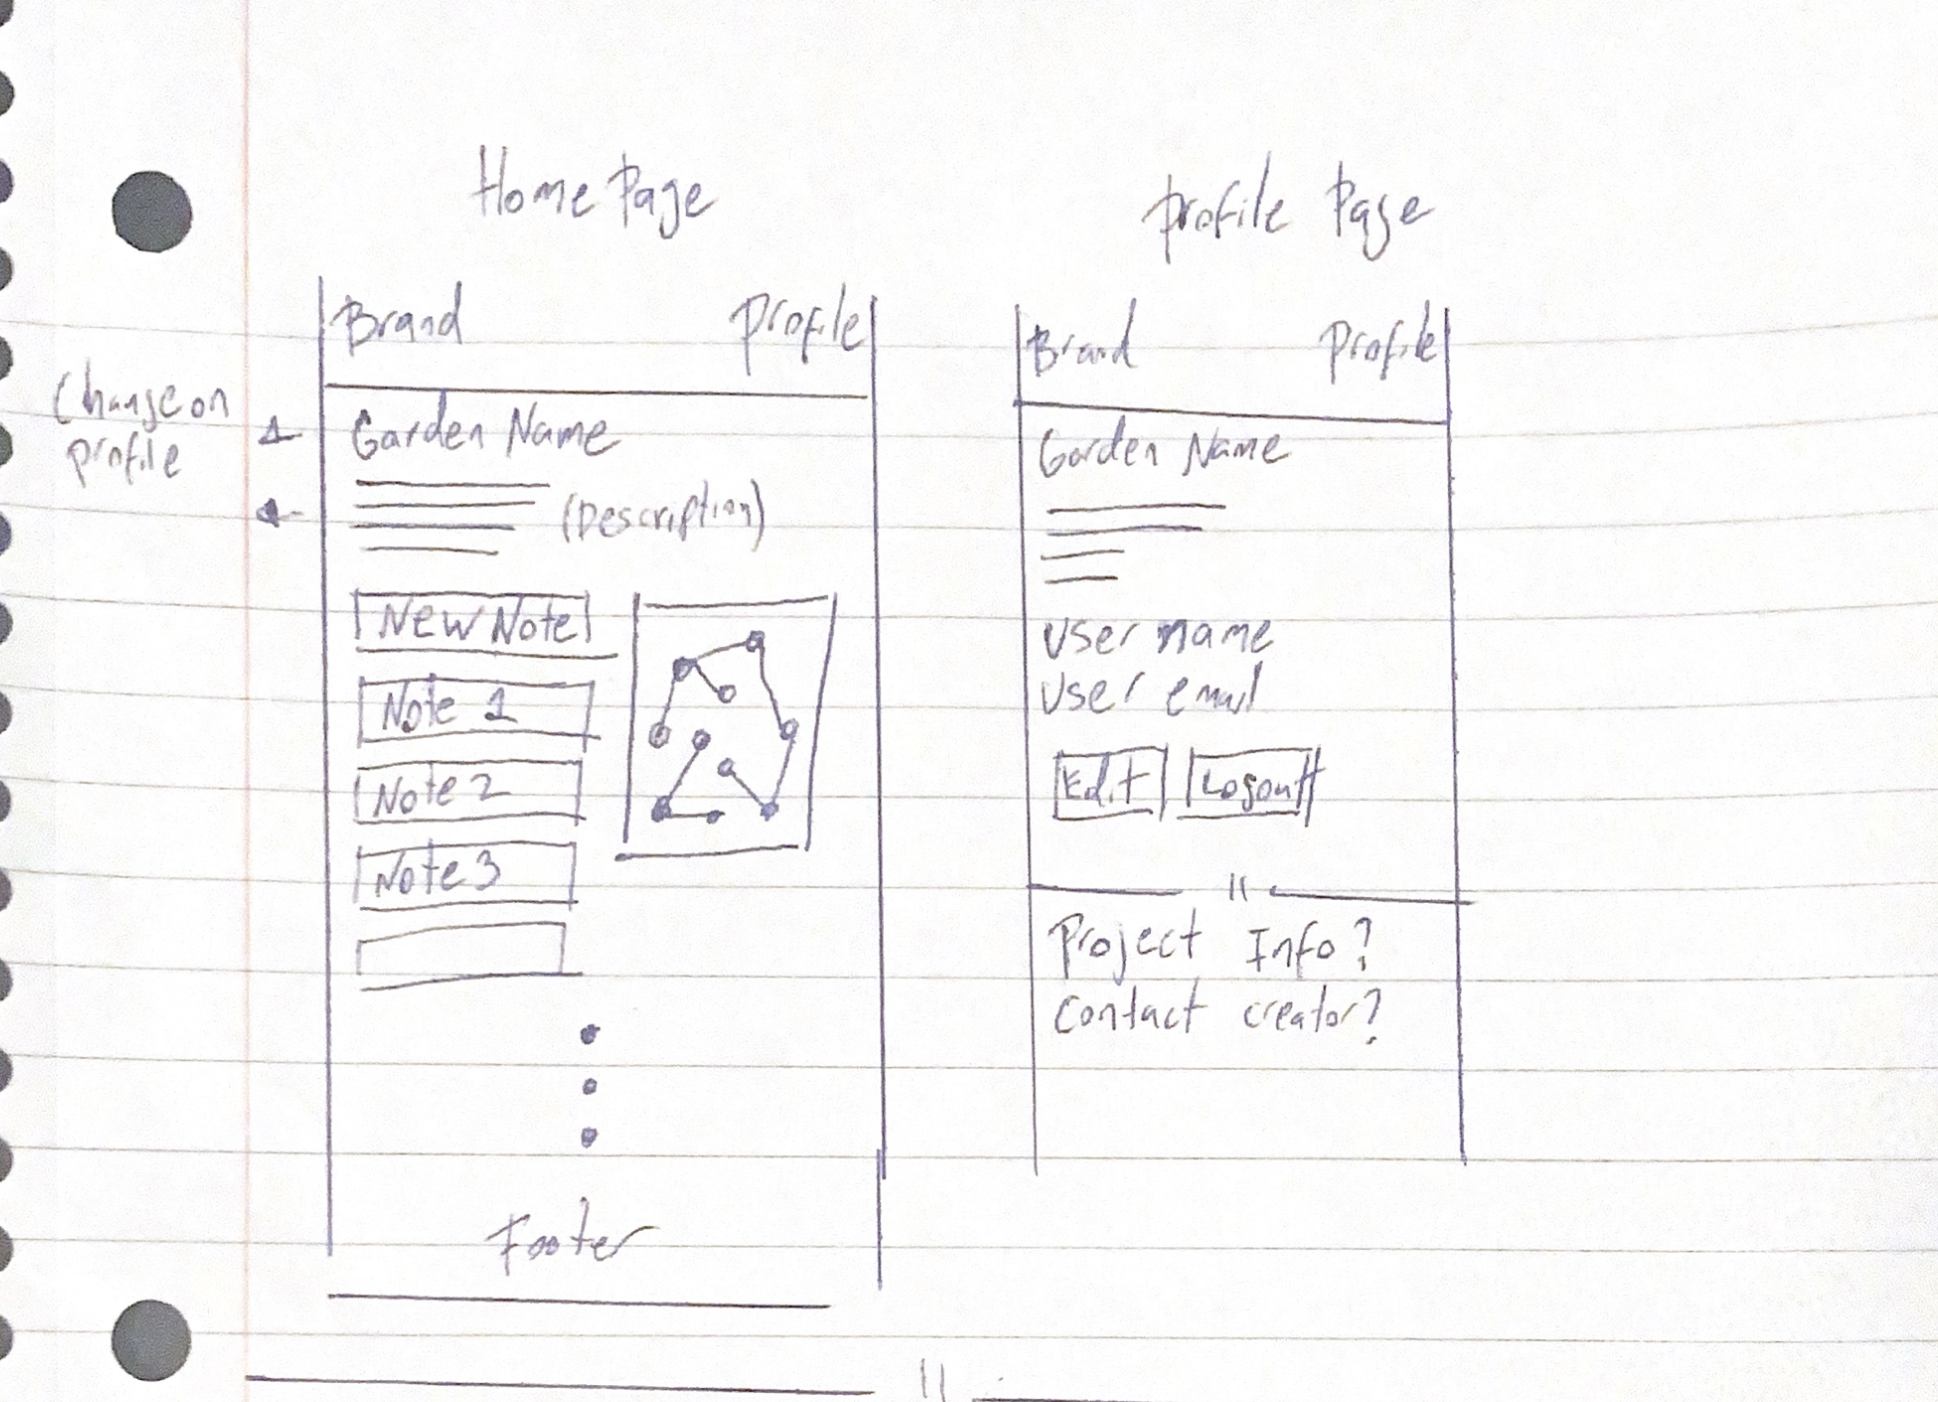 Home Page
Brand Profile
Change on
profile
Garden Name
(Description)
New Note
Note 1
Note 2
Note 3
Footer
Profile Page
Brand Profile
Garden Name
User name
User email
Edit Logout
Project Info?
Contact creator?